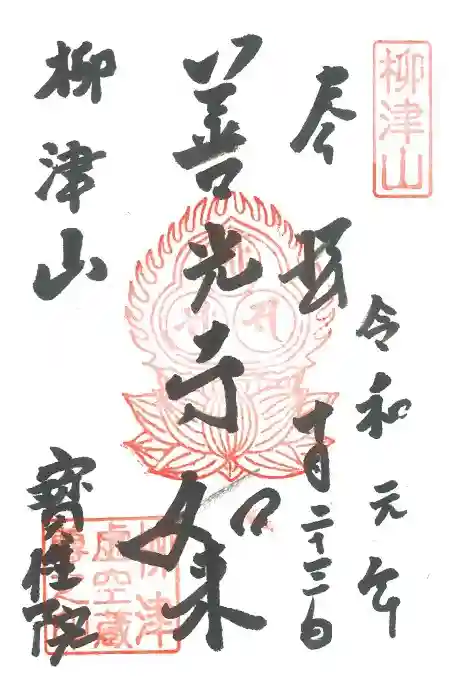 柳津山
奉拝
令和元年
十月二十三日
善光寺如来
柳津山
寶性院
柳津
虚空蔵